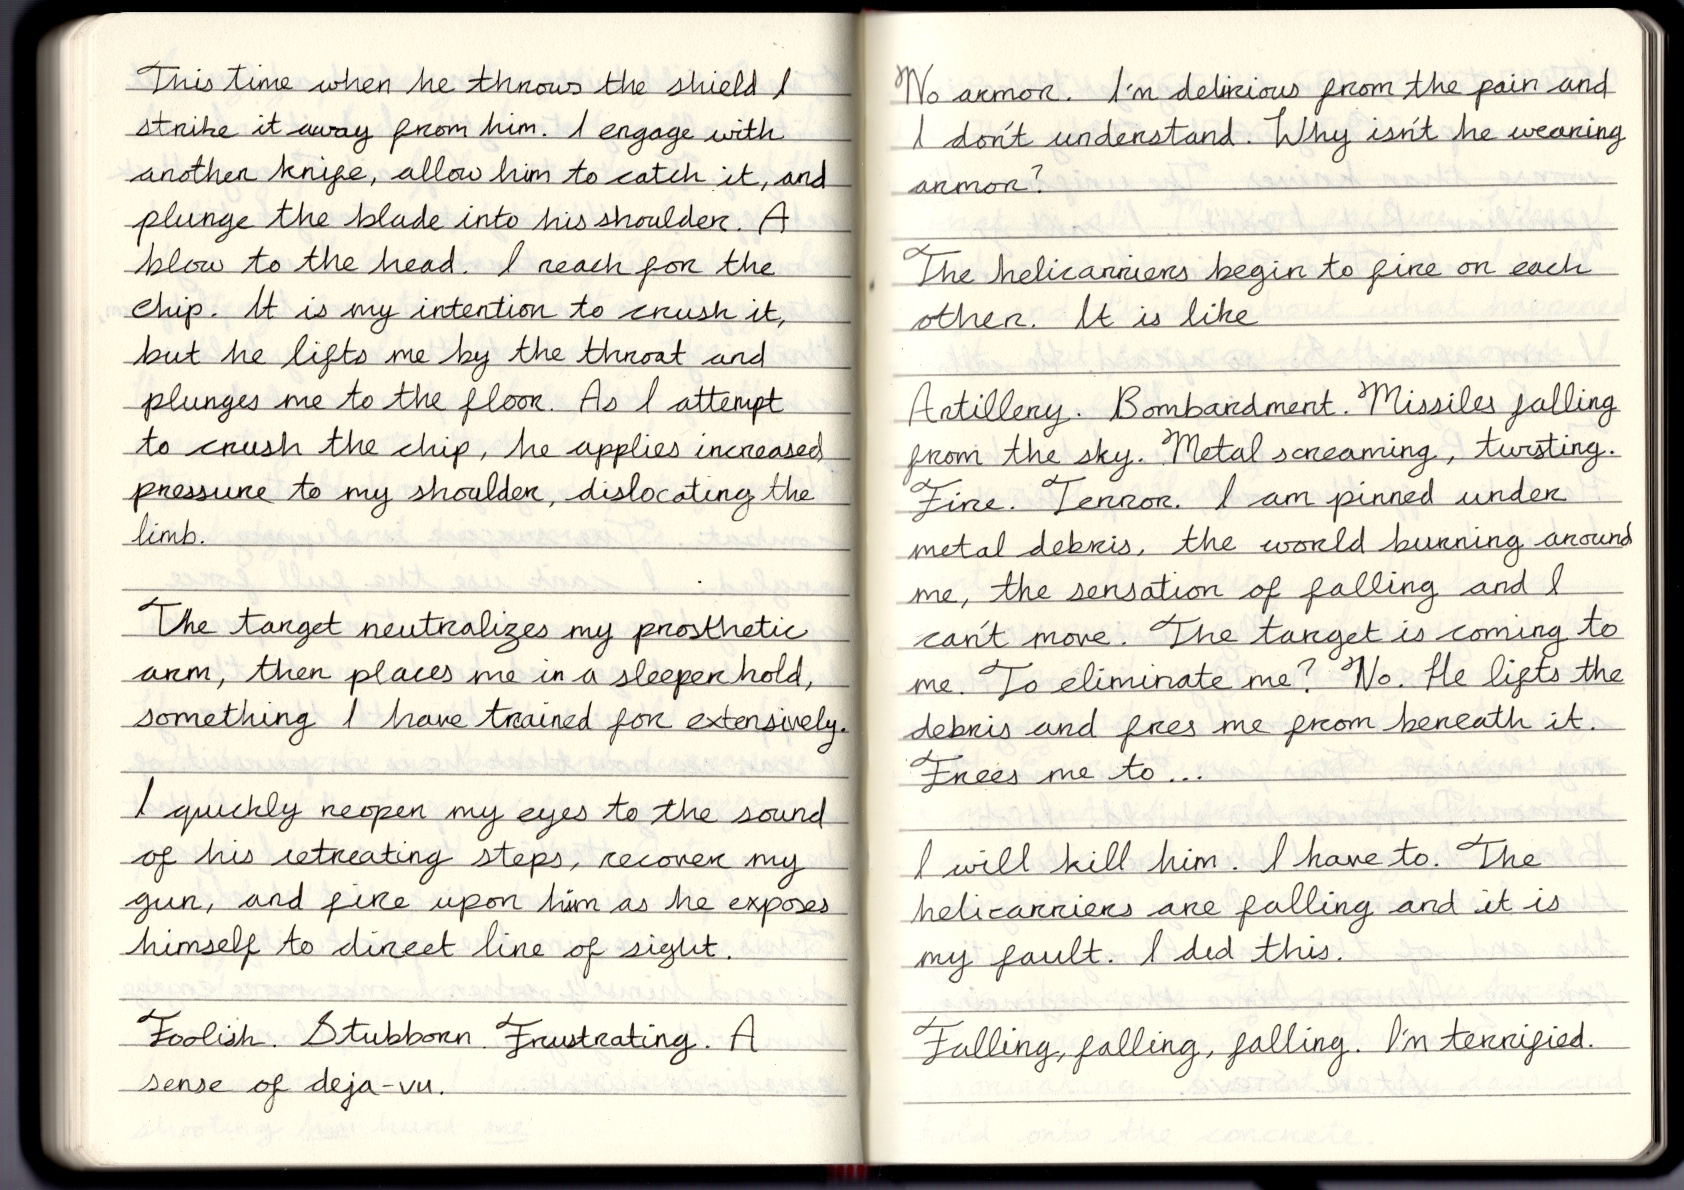 This time when he throws the shield I
strike it away from him. I engage with
another knife, allow him to catch it, and
plunge the blade into his shoulder. A
blow to the head. I reach for the
chip. It is my intention to crush it,
but he lifts me by the throat and
plunges me to the floor. As I attempt
to crush the chip, he applies increased
pressure to my shoulder, dislocating the
limb.
The target neutralizes my prosthetic
arm, then places me in a sleeper hold,
something I have trained for extensively.
I quickly reopen my eyes to the sound
of his retreating steps, recover my
gun, and fire upon him as he exposes
himself to direct line of sight.
Foolish. Stubborn. Frustrating. A
sense of deja-vu.
No armor. I'm delirious from the pain and
I don't understand. Why isn't he wearing
armor?
The helicarriers begin to fire on each
other. It is like
Artillery. Bombardment. Missiles falling
from the sky. Metal screaming, twisting.
Fire. Terror. I am pinned under
metal debris, the world burning around
me, the sensation of falling and I
can't move. The target is coming to
me. To eliminate me? No. He lifts the
debris and frees me from beneath it.
Frees me to...
I will kill him. I have to. The
helicarriers are falling and it is
my fault. I did this.
Falling, falling, falling. I'm terrified.